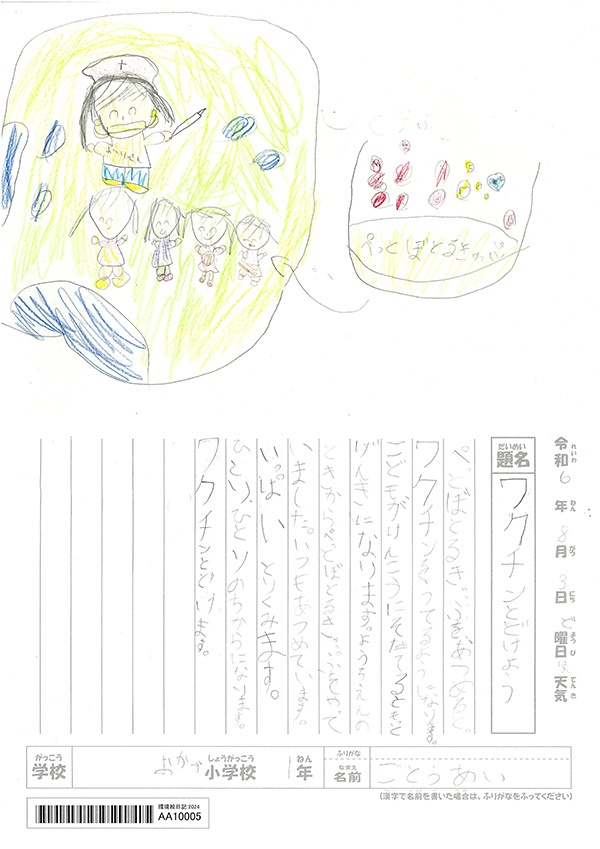 ぺっとぼとるきゃっぷ
令和6年8月3日ど曜日 天気
れいわ ねん がつ にち ようび てんき
だいめい
題名
ワクチンとどけよう
ぺっとぼとるきゃっぷをあつめると、
ワクチンをつくてるようになります。
こどもがけんこうにそだてるともと
げんきになります。ようちえんの
ときからぺっとぼとるきゃっぷをやって
いました。いつもあつめています。
いっぱいとりくみます。
ひとりひとりのちからになります。
ワクチンとどけます。
がっこう しょうがっこう ねん ふりがな
学校 小学校 1年
なまえ
名前 ごとうあい
(漢字で名前を書いた場合は、ふりがなをふってください)
環境絵日記 2024
AA10005